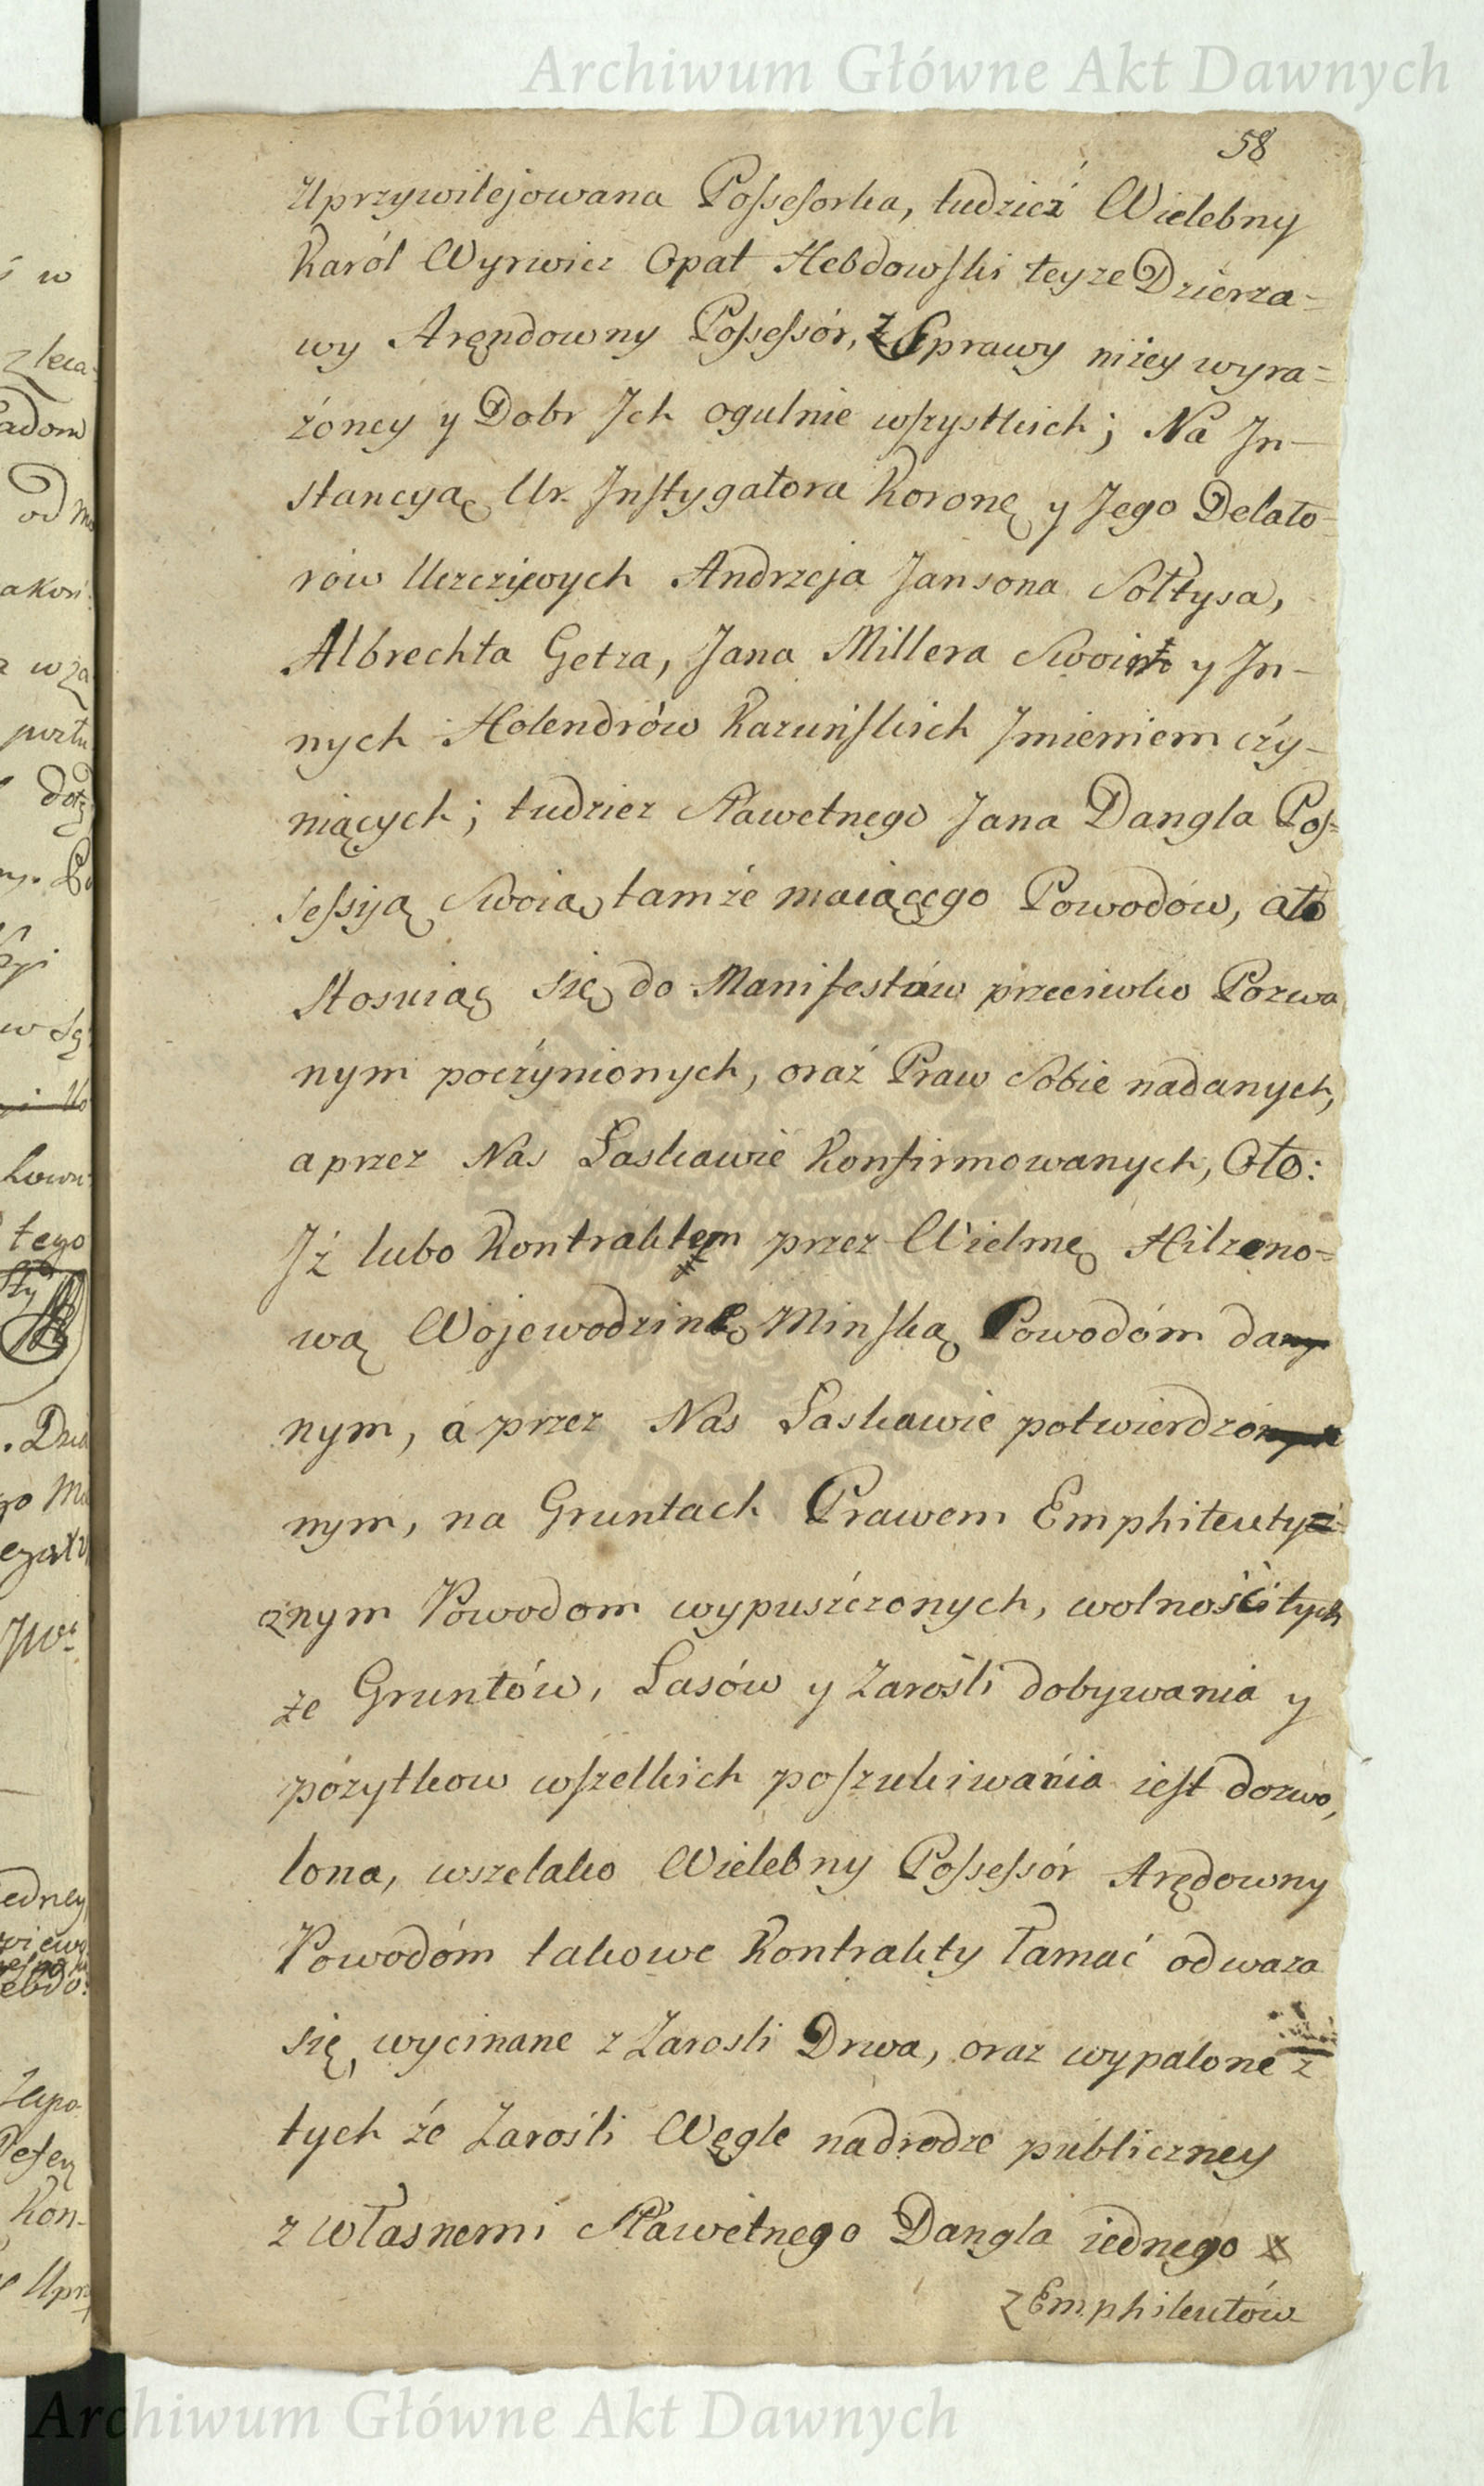 Archiwum Główne Akt Dawnych
58
Uprzywilejowana Possessorka, tudzież Wielebny
Karól Wyrwicz Opat Hebdowski teyze Dzierża-
wy Aręndowny Possessór, z Sprawy niżey wyra-
żoney y Dobr Ich ogulnie wszystkich; Na In-
stancyą Ur. Instygatora Koronę y Jego Delato-
rów Uczciwych Andrzeja Jansona Sołtysa,
Albrechta Getza, Jana Millera Swoim y In-
nych Holendrów Kazuńskich Imieniem czy-
niących; tudziez Sławetnego Jana Dangla Pos-
sessyją Swoią tamże maiącego Powodów, a to
Stosuiąc się do Manifestów przeciwko Pozwa
nym poczynionych, oraz Praw Sobie nadanych,
a przez Nas Łaskawie Konfirmowanych, Oto:
Iż lubo Kontraktem przez Wielmę Hilzeno-
wą Wojewodzinę Mińską Powodóm da
nym, a przez Nas Łaskawie potwierdzo
nym, na Gruntach Prawem Emphiteuty-
cznym Powodom wypuszczonych, wolność tych
że Gruntów, Lasów y Zarośli dobywania y
pożytkow wszelkich poszukiwania iest dozwo,
lona, wszelako Wielebny Possessór Arędowny
Powodóm takowe Kontrakty łamać odważa
się, wycinane z Zarosli Drwa, oraz wypalone z
tych że Zarośli Węgle na drodze publiczney
z własnemi Sławetnego Dangla iednego
z Emphiteutów
Archiwum Główne Akt Dawnych